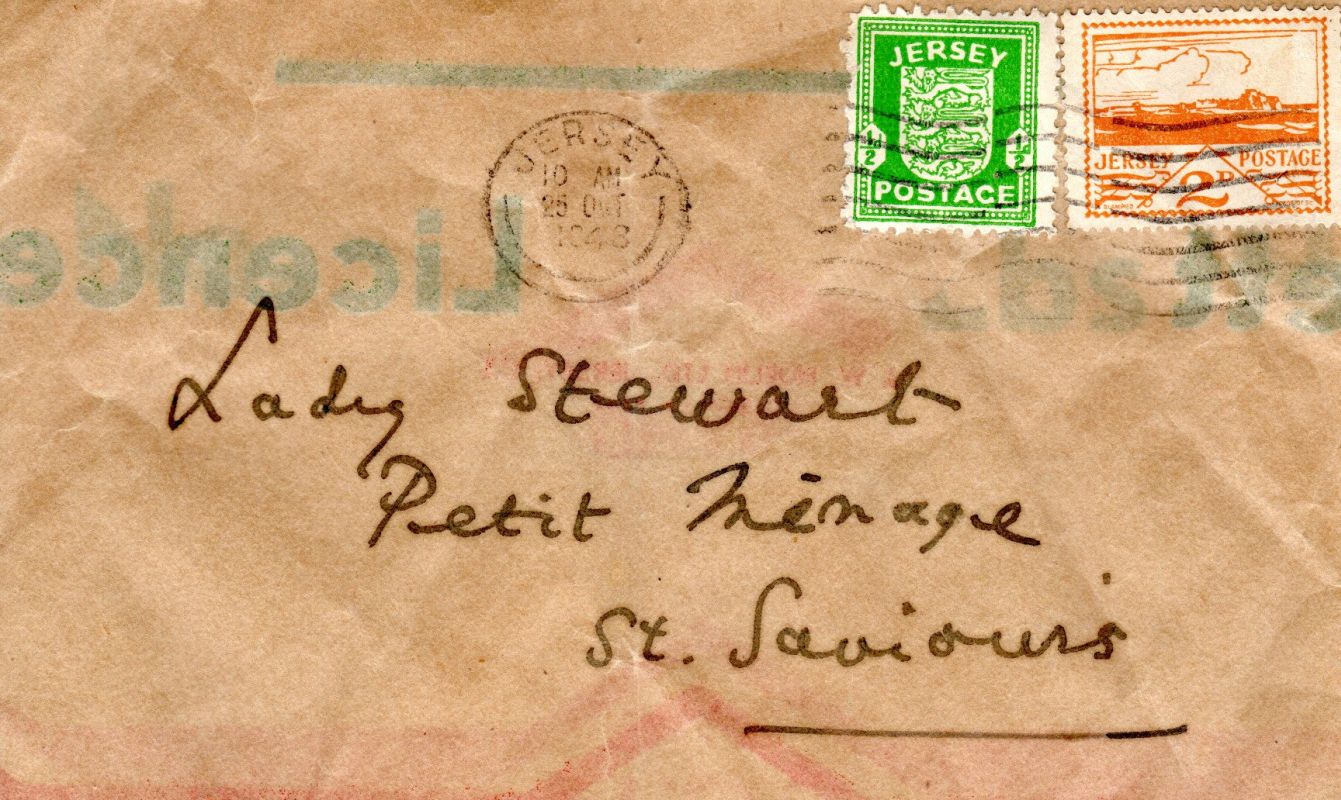 JERSEY
½ ½
POSTAGE
JERSEY POSTAGE
2D
JERSEY
10 AM
25 OCT
1943
Lady Stewart
Petit Ménage
St. Saviours